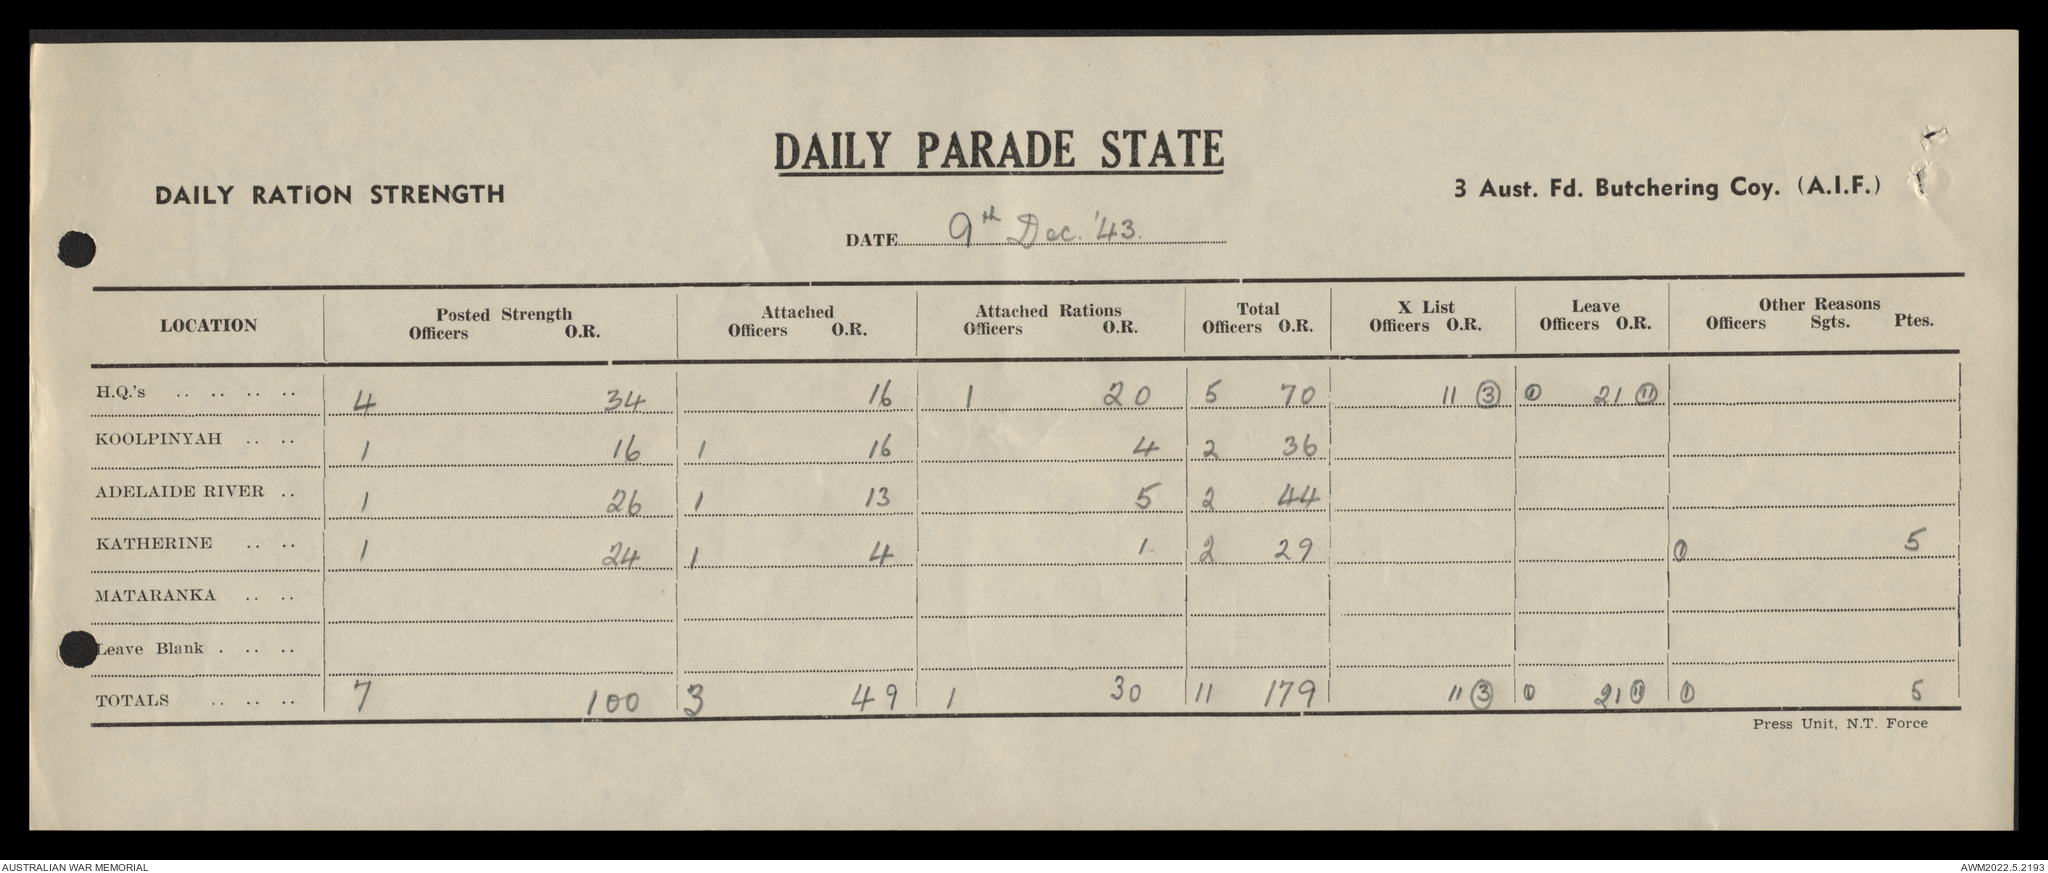 DAILY PARADE STATE
DAILY RATION STRENGTH
3 Aust. Fd. Butchering Coy. (A.I.F.)
DATE 9th Dec. '43.
LOCATION Posted Strength Attached Attached Rations Total X List Leave Other Reasons
Officers O.R. Officers O.R. Officers O.R. Officers O.R. Officers O.R. Officers O.R. Officers Sgts. Ptes.
H.Q.'s .. .. .. .. 4 34 16 1 20 5 70 11 (3) (1) 21 (11)
KOOLPINYAH .. .. 1 16 1 16 4 2 36
ADELAIDE RIVER .. 1 26 1 13 5 2 44
KATHERINE .. .. 1 24 1 4 1 2 29 (1) 5
MATARANKA .. ..
Leave Blank . .. ..
TOTALS .. .. .. 7 100 3 49 1 30 11 179 11 (3) (1) 21 (11) (1) 5
Press Unit, N.T. Force
AUSTRALIAN WAR MEMORIAL
AWM2022.5.2193